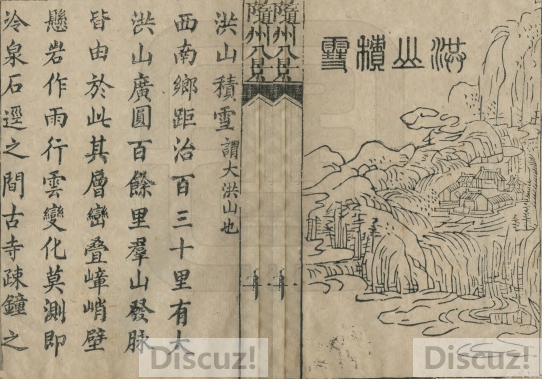 洪山積雪
隨州八景
隨州八景
洪山積雪 謂大洪山也
西南鄉距治百三十里有大
洪山廣圓百餘里羣山發脉
皆由於此其層巒叠嶂峭壁
懸岩作雨行雲變化莫測即
冷泉石逕之間古寺疎鐘之
Discuz!
Discuz!